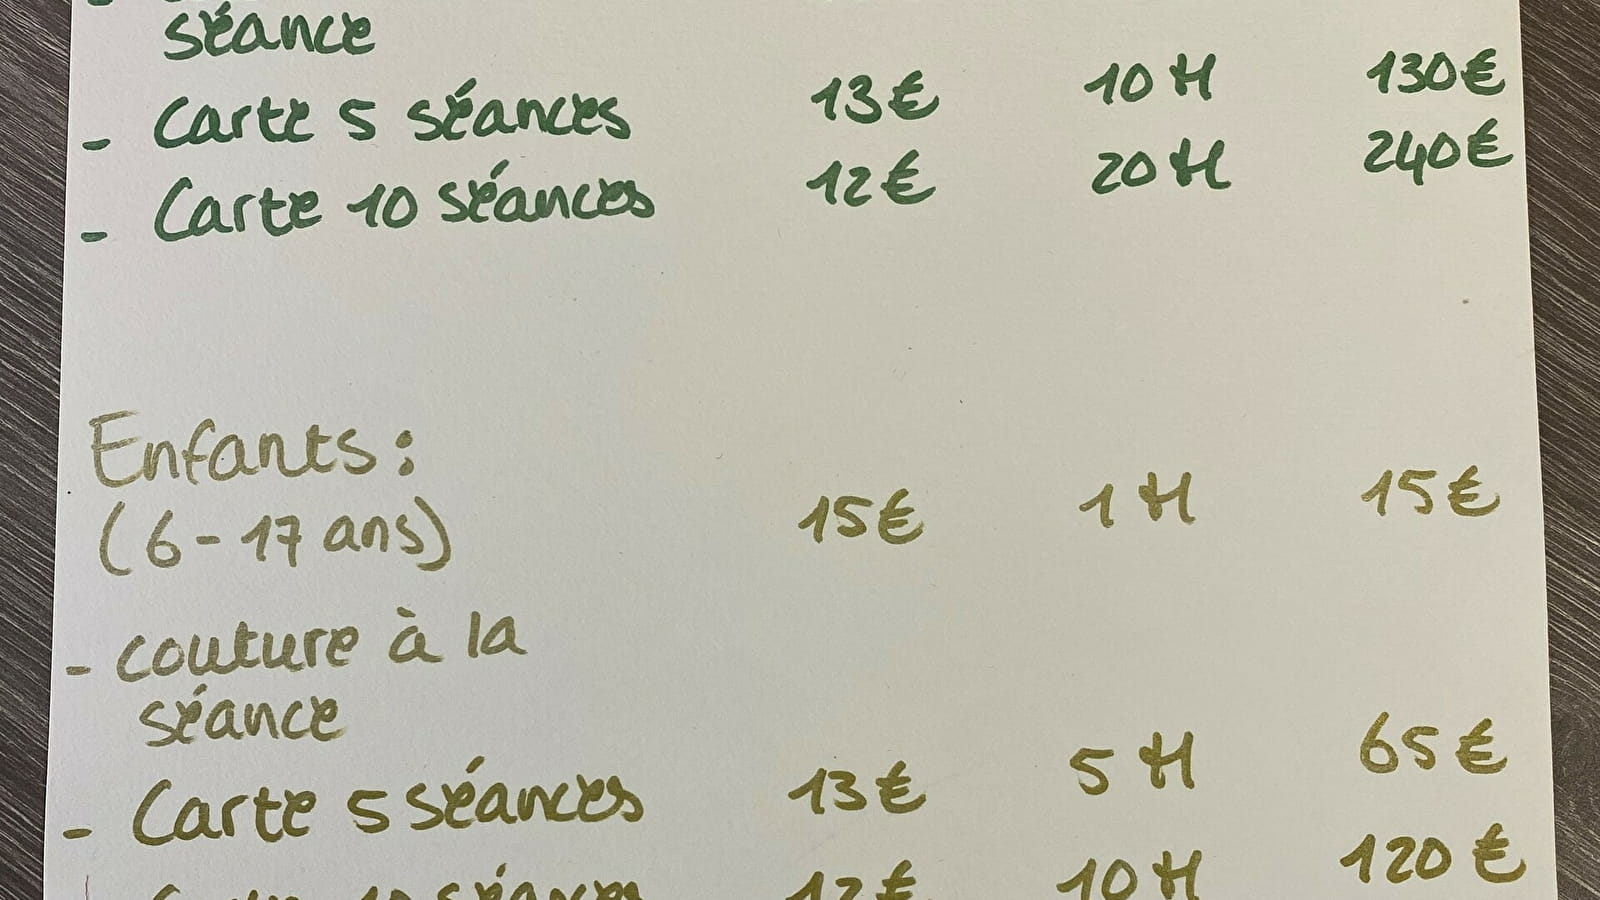 séance
- Carte 5 séances 13€ 10 H 130€
- Carte 10 séances 12€ 20 H 240€
Enfants :
(6-17 ans) 15€ 1 H 15€
- couture à la
séance
- Carte 5 séances 13€ 5 H 65€
Carte 10 séances 12€ 10 H 120€